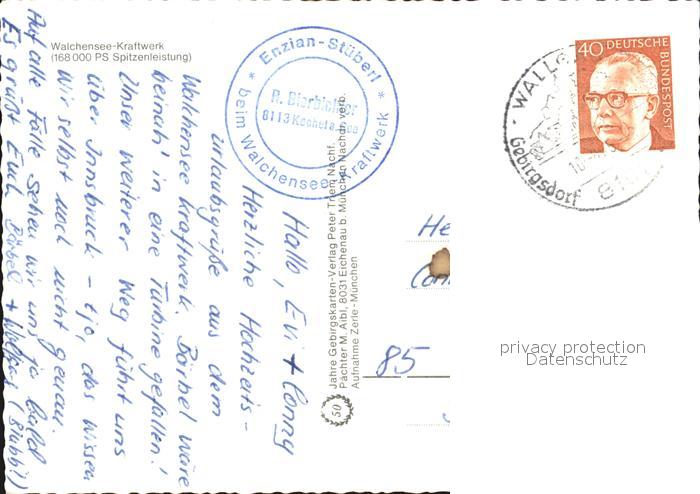 Walchensee-Kraftwerk
(168 000 PS Spitzenleistung)
* Enzian-Stüberl *
beim Walchensee-Kraftwerk
8113 Kochel a. See
Hallo, Evi + Conny
Herzliche Hochzeits-
urlaubsgrüße aus dem
Walchensee Kraftwerk. Bärbel wäre
beinah' in eine Turbine gefallen!
Unser weiterer Weg führt uns
über Innsbruck - tjo, das wissen
wir selbst noch nicht genau.
Auf alle Fälle sehen wir uns ja bald
Es grüßt Euch Bärbel +
Jahre Gebirgskarten-Verlag Peter Triem Nachf.
Pächter M. Aibl, 8031 Eichenau b. München Nachdr. verb.
Aufnahme Zerle-München
50
40 DEUTSCHE
BUNDESPOST
WALLG
Gebirgsdorf
He
Con
85
privacy protection
Datenschutz